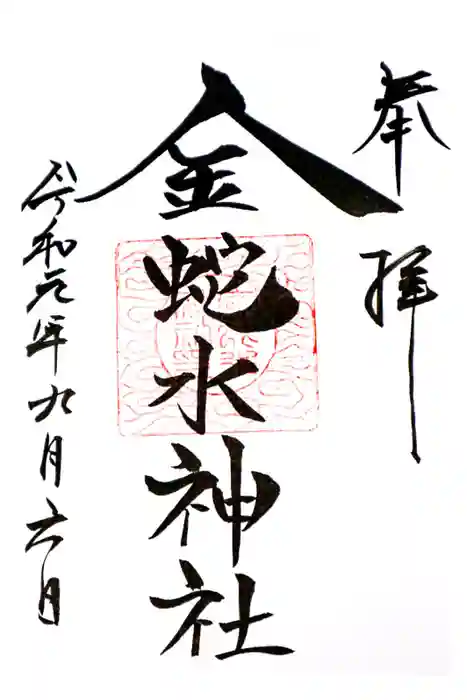 奉拝
金蛇水神社
令和元年九月六日